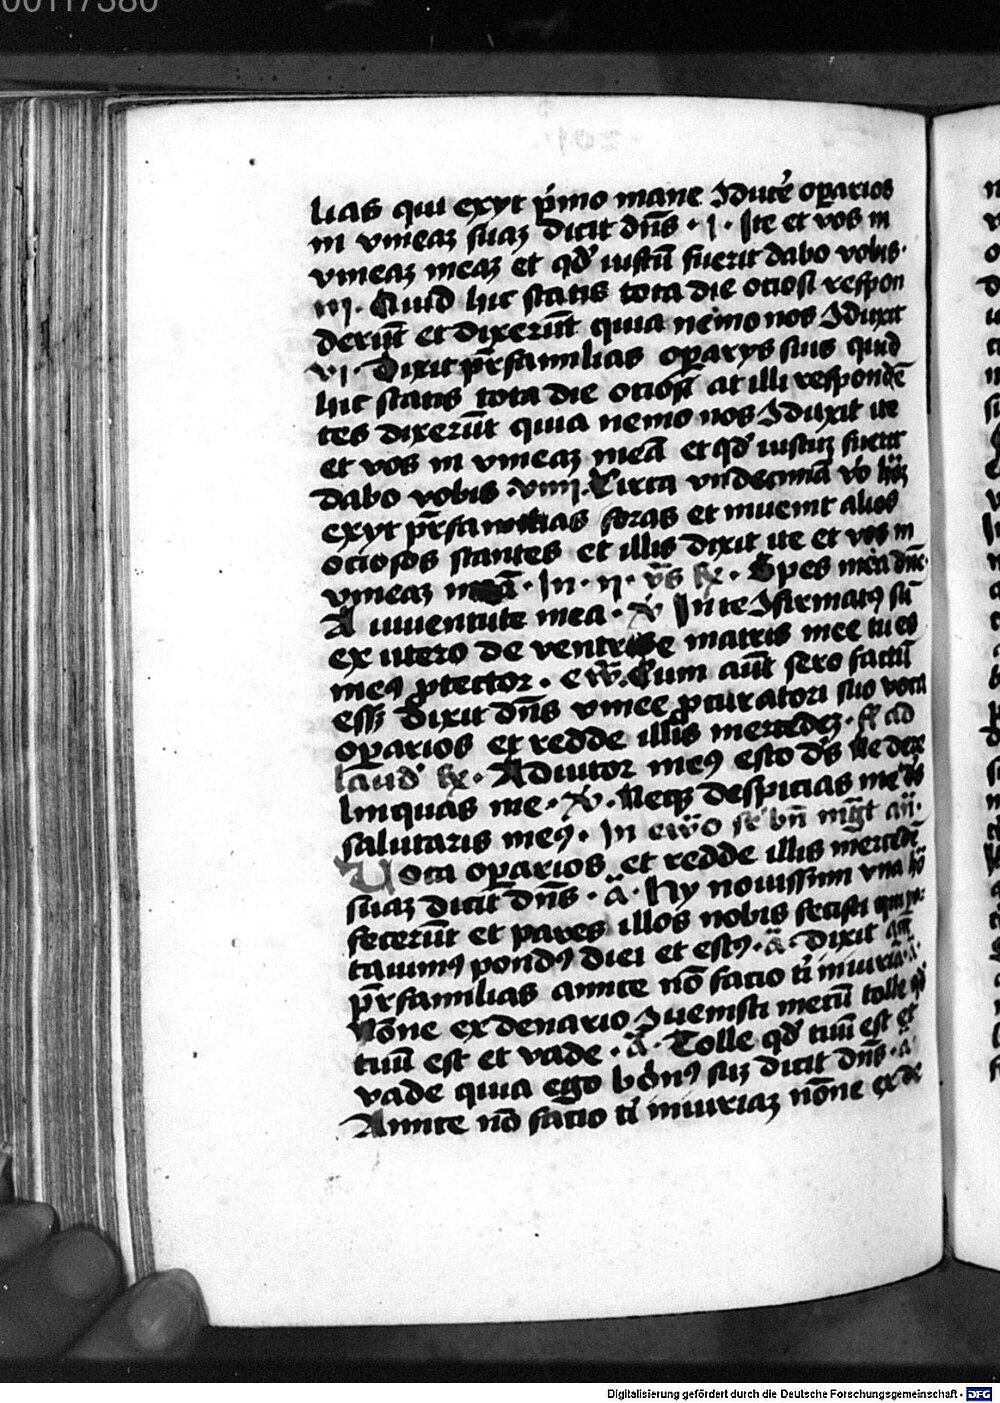 00117380
lias qui exyt p̄mo mane 9duce̅ op̲arios
in vineaz suaz dicit dn̅s · i · Ite et vos in
vineaz meaz et qd̅ iustu̅ fuerit dabo vobis ·
iij · Quid hic statis tota die ociosi respon
deru̅t et dixeru̅t quia nemo nos 9duxit
vi · Dixit pr̅familias op̲arys suis quid
hic statis tota die ociosi at illi responde̅
tes dixeru̅t quia nemo nos 9duxit ite
et vos in vineaz mea̅ et qd̅ iustuz fuerit
dabo vobis · viiij · Circa vndecima̅ vo
exyt pr̅familias foras et inuenit alios
ociosos stantes et illis dixit ite et vos in
vineaz · In · ij · vs̅ · Spes mea dn̅e
A iuuentute mea · v̅ In te 9firmat9 su̅
ex utero de ventre matris mee tu es
me9 p̲tector · ew̅. Cum aut̅ sero factu̅
ess̅ dixit dn̅s vinee p̲curatori suo voca
op̲arios et redde illis mercedez · ad
laud̅ · Adiutor me9 esto ds̅ Ne dere
linquas me · v̅ · Neq3 despicias me ds̅
salutaris me9 · In ew̅o bn̅ mg̅t an̅ ·
Uoca op̲arios et redde illis mercede̅
suaz dicit dn̅s · a̅ · Hy nouissimi vna
feceru̅t et pares illos nobis fecisti qui por
tauim9 pond9 diei et est9 · a̅ · dixit
pr̅familias amice no̅ facio t̅i iniuria̅ ·
No̅ne ex denario 9uenisti mecu̅ tolle qd̅
tuu̅ est et vade · a̅ · Tolle qd̅ tuu̅ est et
vade quia ego bon9 su3 dicit dn̅s · a̅
Amice no̅ facio t̅i iniuriaz no̅ne ex de
Digitalisierung gefördert durch die Deutsche Forschungsgemeinschaft - DFG